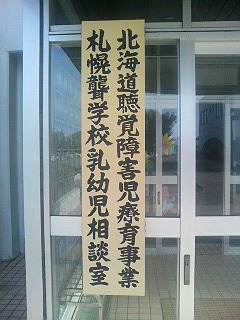 北海道聴覚障害児療育事業
札幌聾学校乳幼児相談室